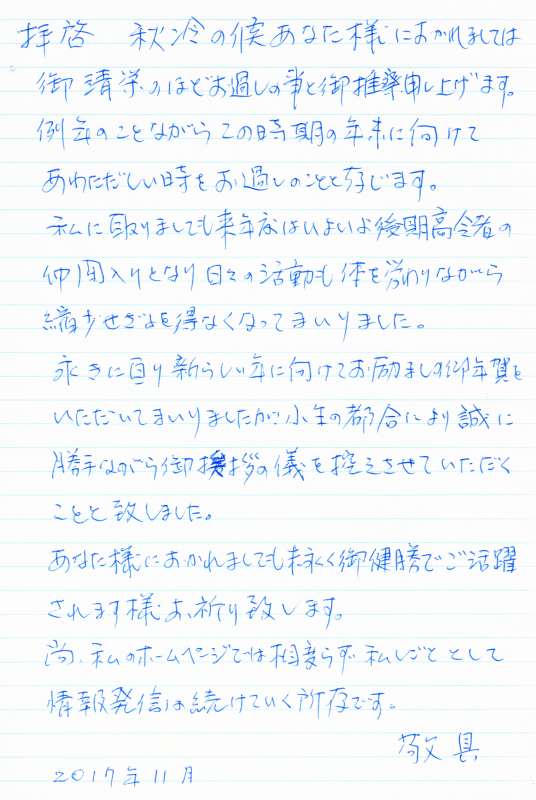 拝啓 秋冷の候あなた様におかれましては
御清栄のほどお過しの事と御推察申し上げます。
例年のことながらこの時期の年末に向けて
あわただしい時をお過しのことと存じます。
私に取りましても来年はいよいよ後期高令者の
仲間入りとなり日々の活動も体を労わりながら
縮少せざるを得なくなってまいりました。
永きに亘り新らしい年に向けてお励ましの御年賀を
いただいてまいりましたが小生の都合により誠に
勝手ながら御挨拶の儀を控えさせていただく
ことと致しました。
あなた様におかれましても末永く御健勝でご活躍
されます様お祈り致します。
尚、私のホームページでは相変らず私しごととして
情報発信は続けていく所存です。
敬具
2017年11月